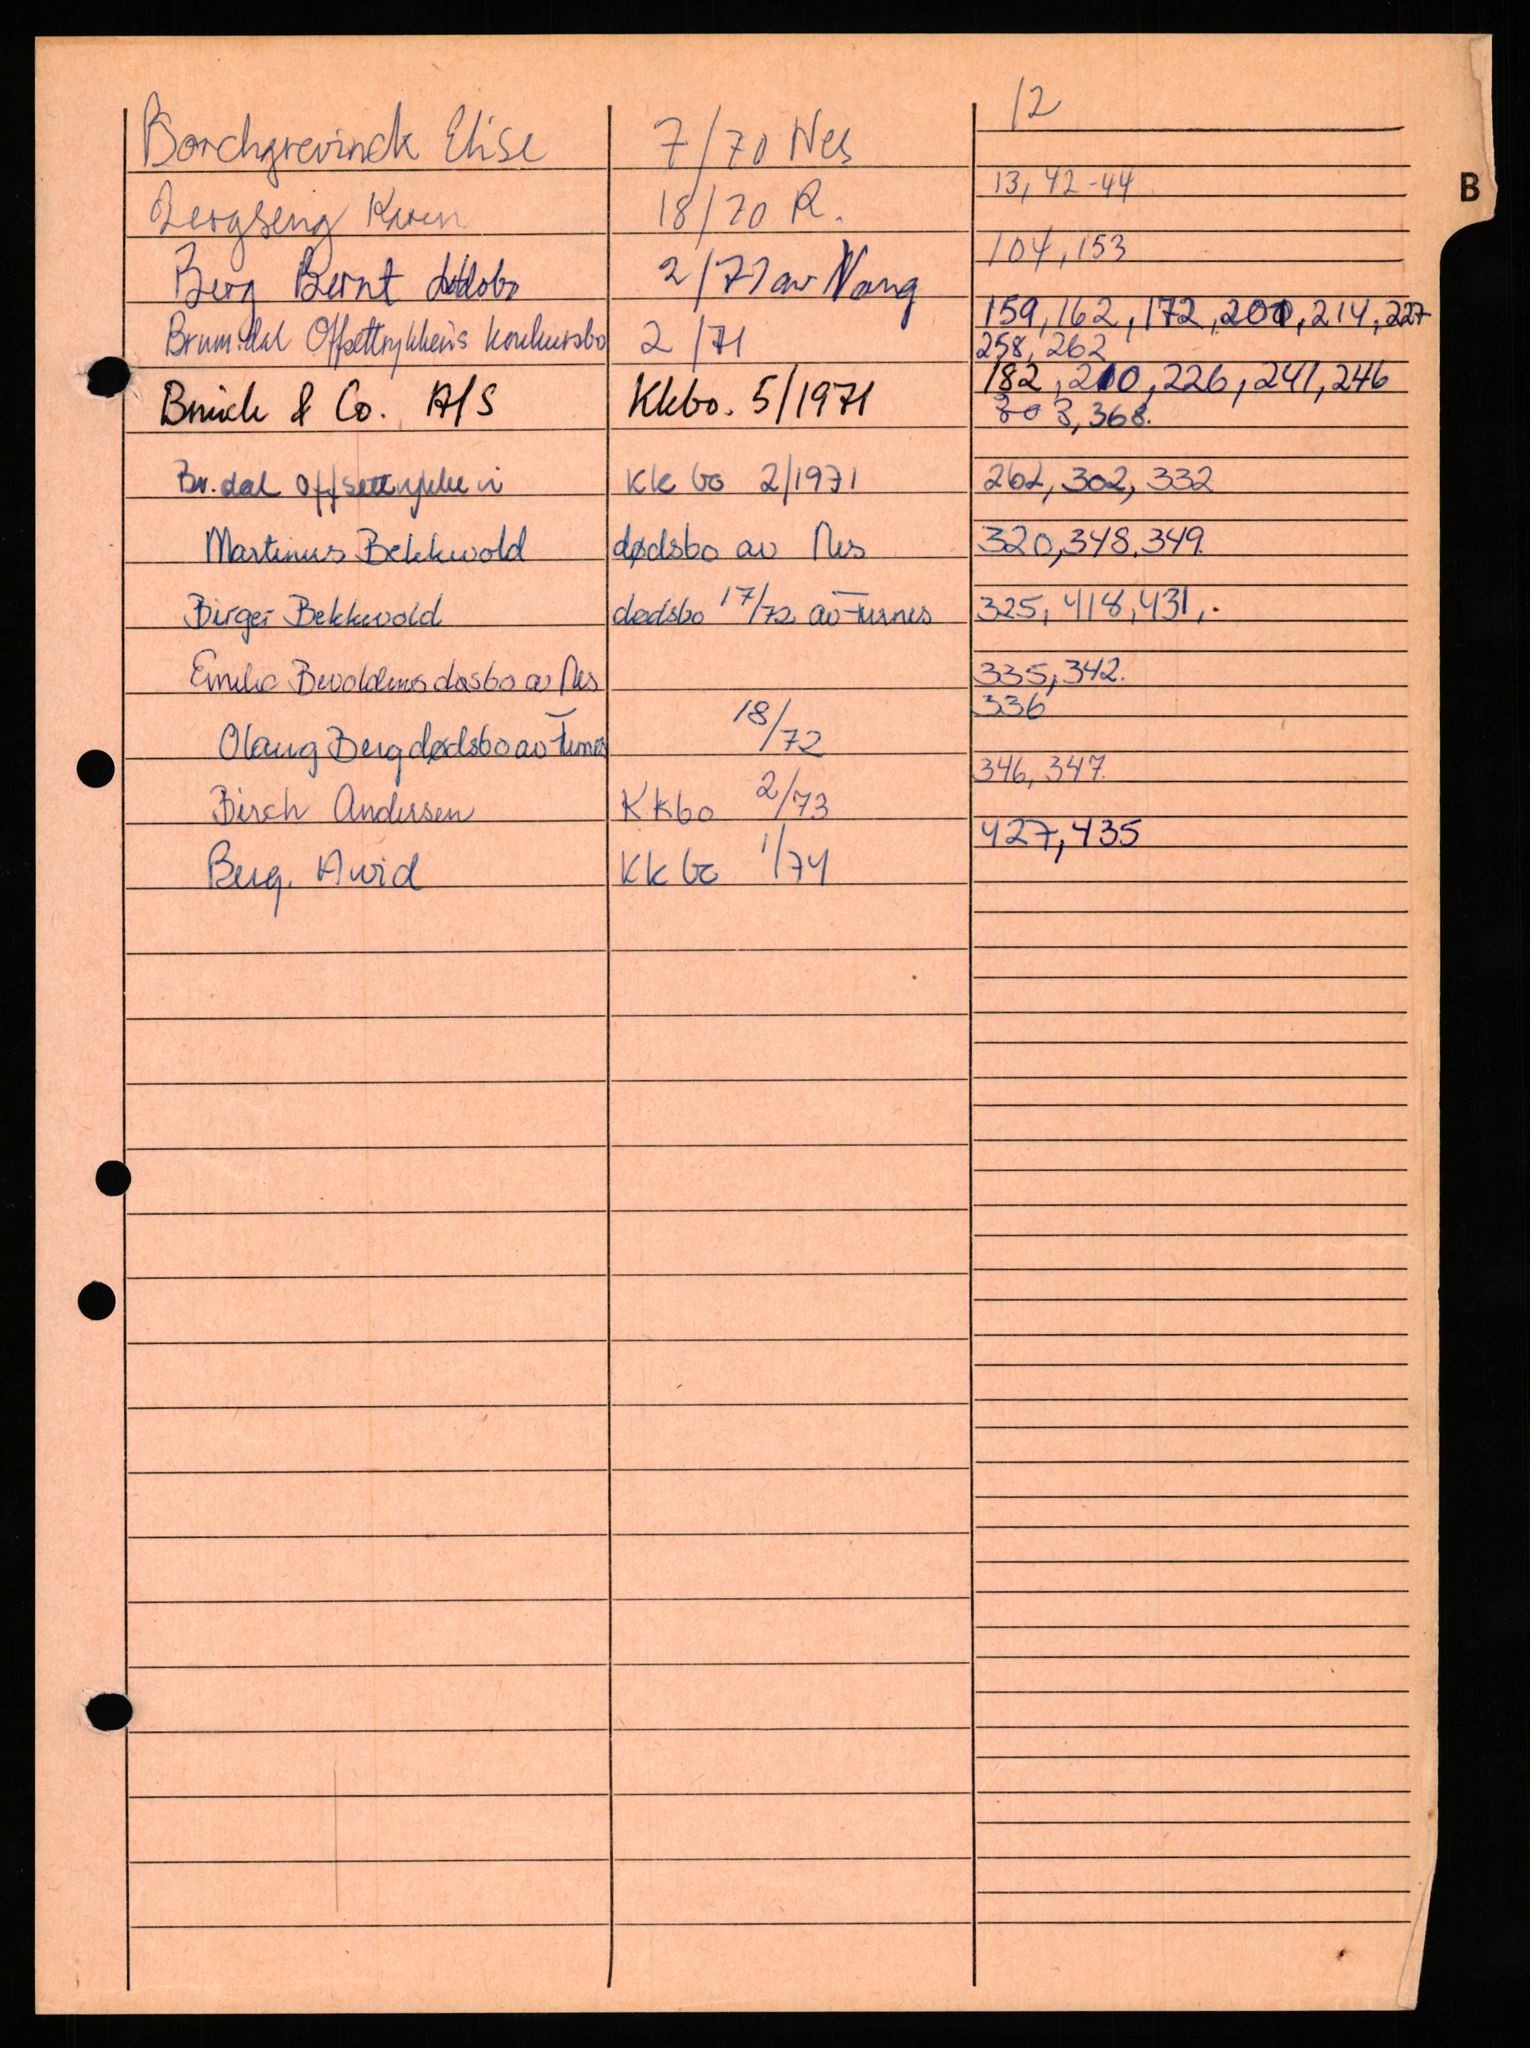 Borchgrevinck Elise 7/70 Nes 12
Bergseng Karen 18/70 R. 13, 42-44
Berg Bernt dødsbo 2/71 av Vang 104, 153
Brum.dal Offsettrykkeris konkursbo 2/71 159, 162, 172, 201, 214, 227
258, 262
& Co. A/S Kkbo. 5/1971 182, 210, 226, 241, 246
303, 368.
Br.dal Offsettrykkeri Kk bo 2/1971 262, 302, 332
Martinus Bekkvold dødsbo av Nes 320, 348, 349.
Birger Bekkvold dødsbo 17/72 av Furnes 325, 418, 431, .
døsbo av Nes 335, 342.
Olaug Berg dødsbo av Furnes 18/72 336
Birch Andersen Kkbo 2/73 346, 347.
Berg, Arvid Kk bo 1/74 427, 435
B